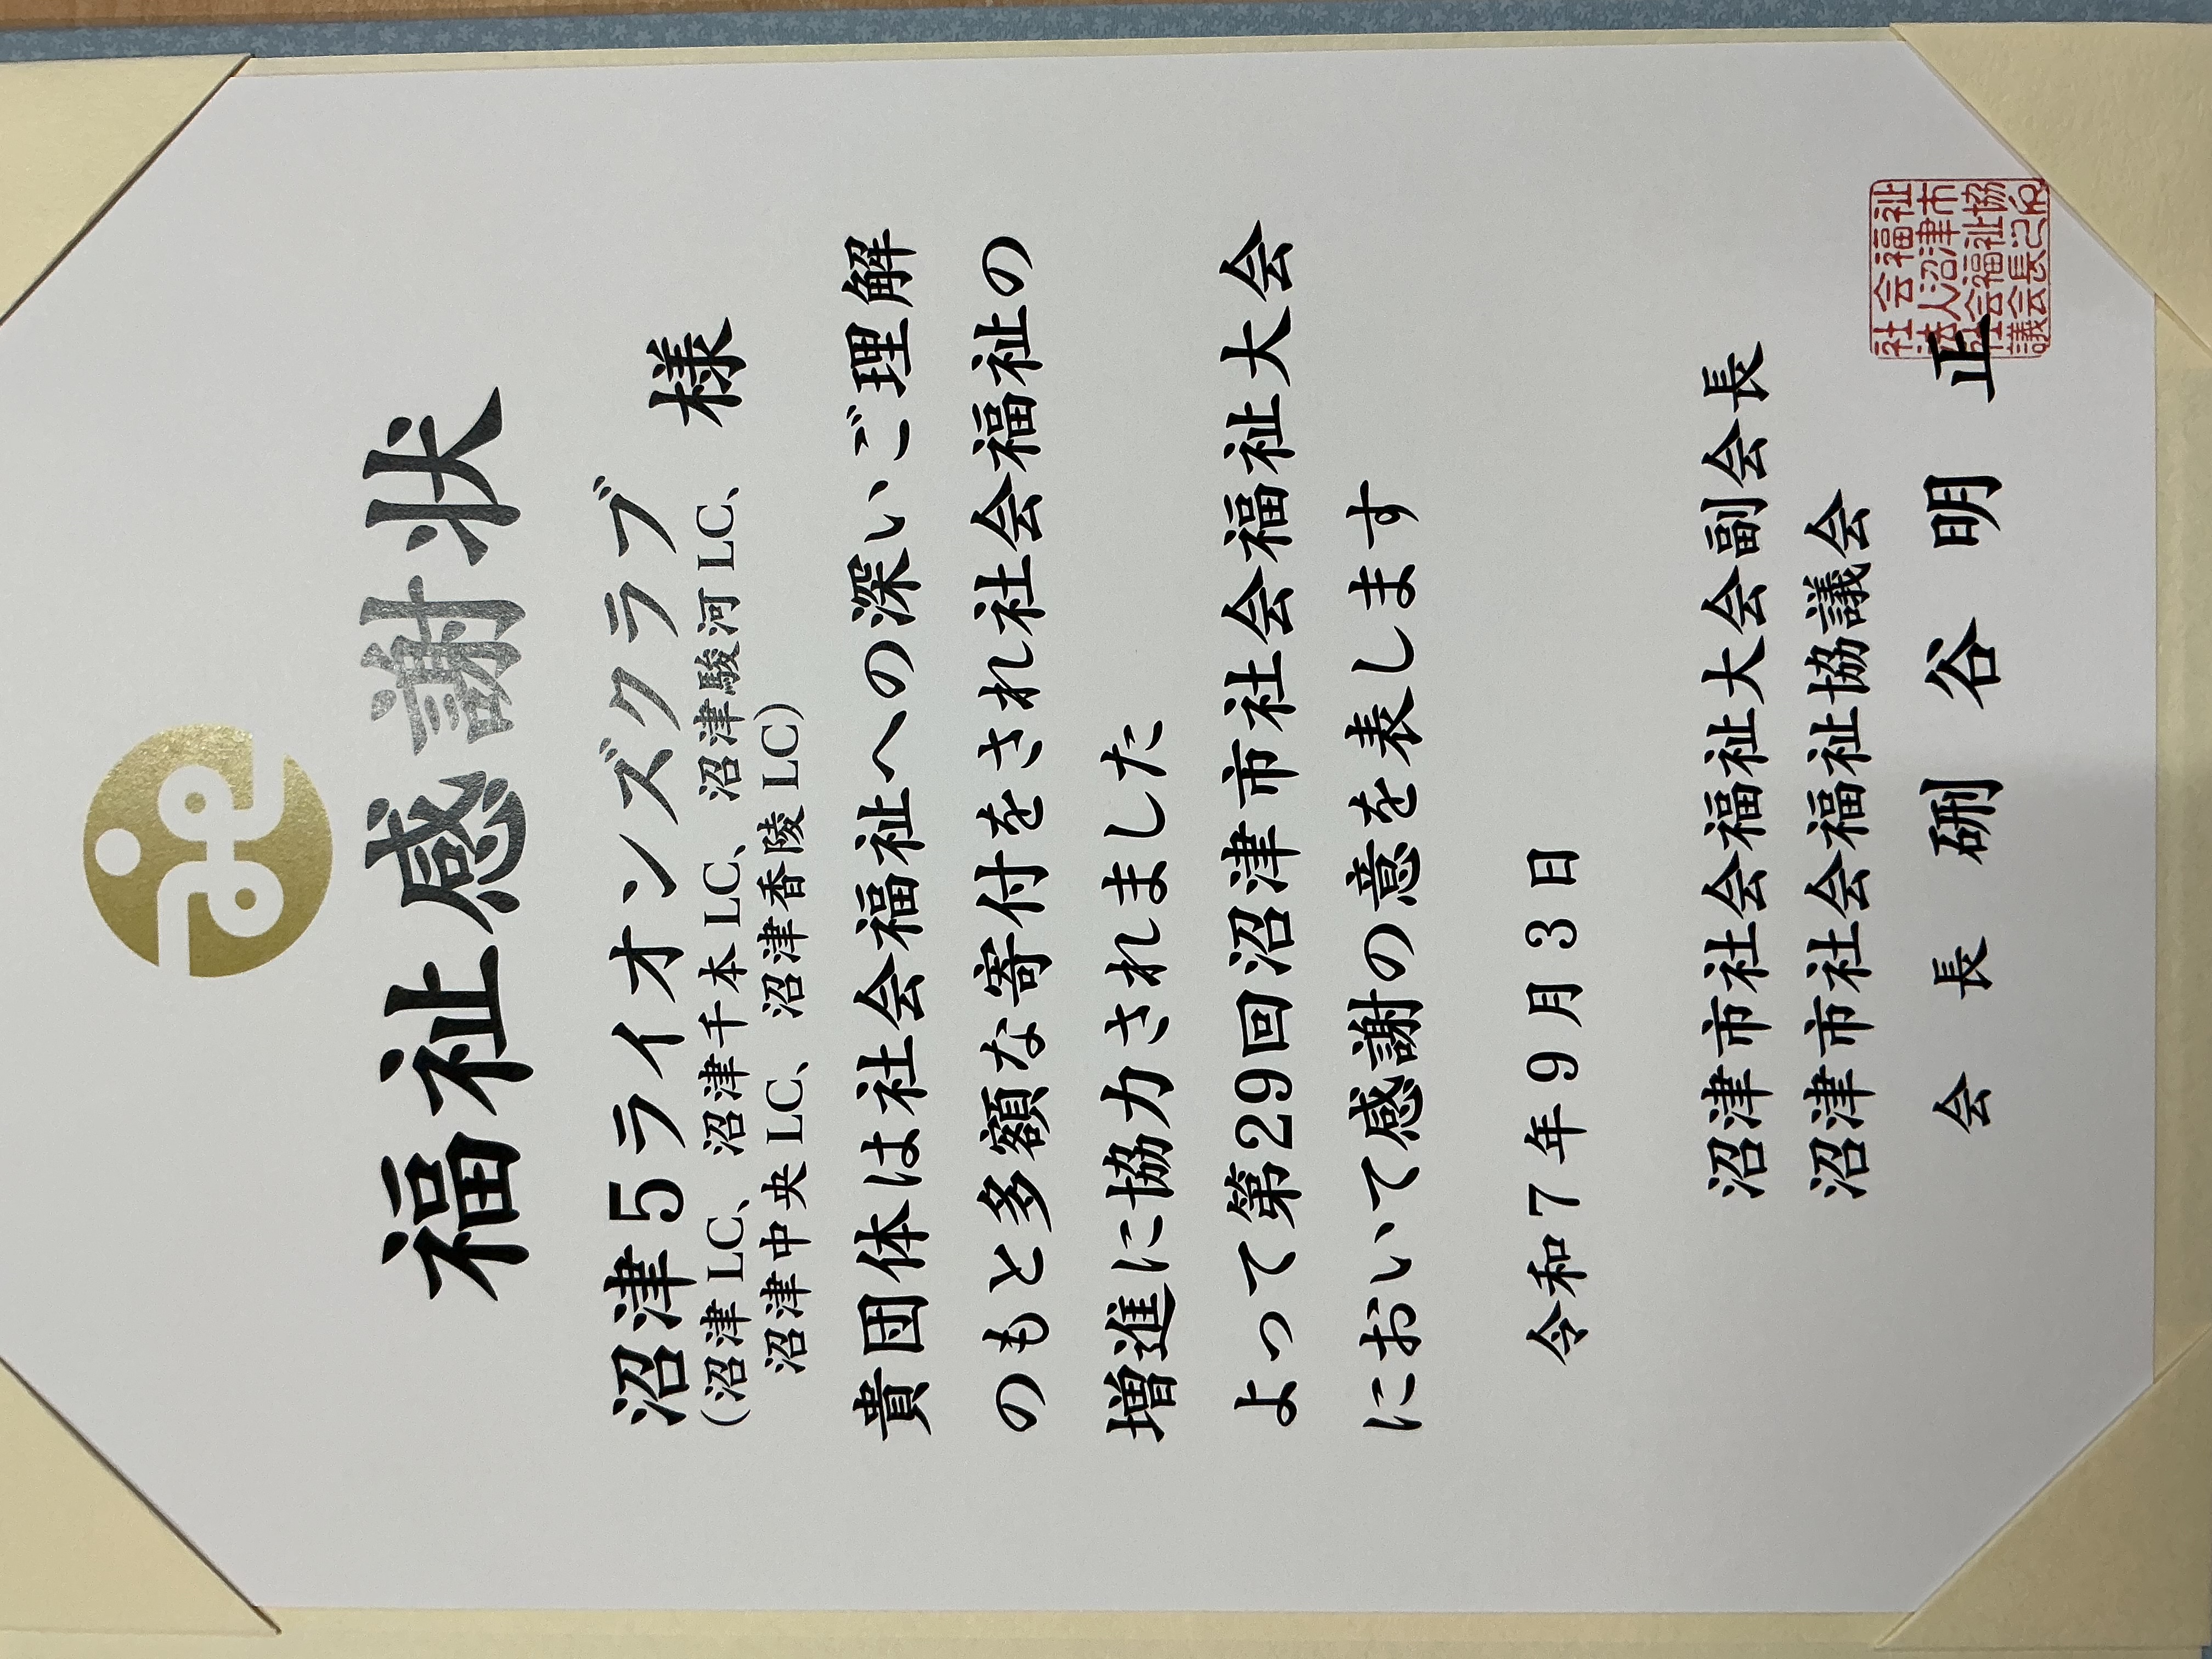 福祉感謝状
沼津5ライオンズクラブ
(沼津LC、沼津千本LC、沼津駿河LC、
沼津中央LC、沼津香陵LC)
様
貴団体は社会福祉への深いご理解
のもと多額な寄付をされ社会福祉の
増進に協力されました
よって第29回沼津市社会福祉大会
において感謝の意を表します
令和7年9月3日
沼津市社会福祉大会副会長
沼津市社会福祉協議会
会長 硎谷明正
社会福祉
法人沼津市
社会福祉協
議会長之印